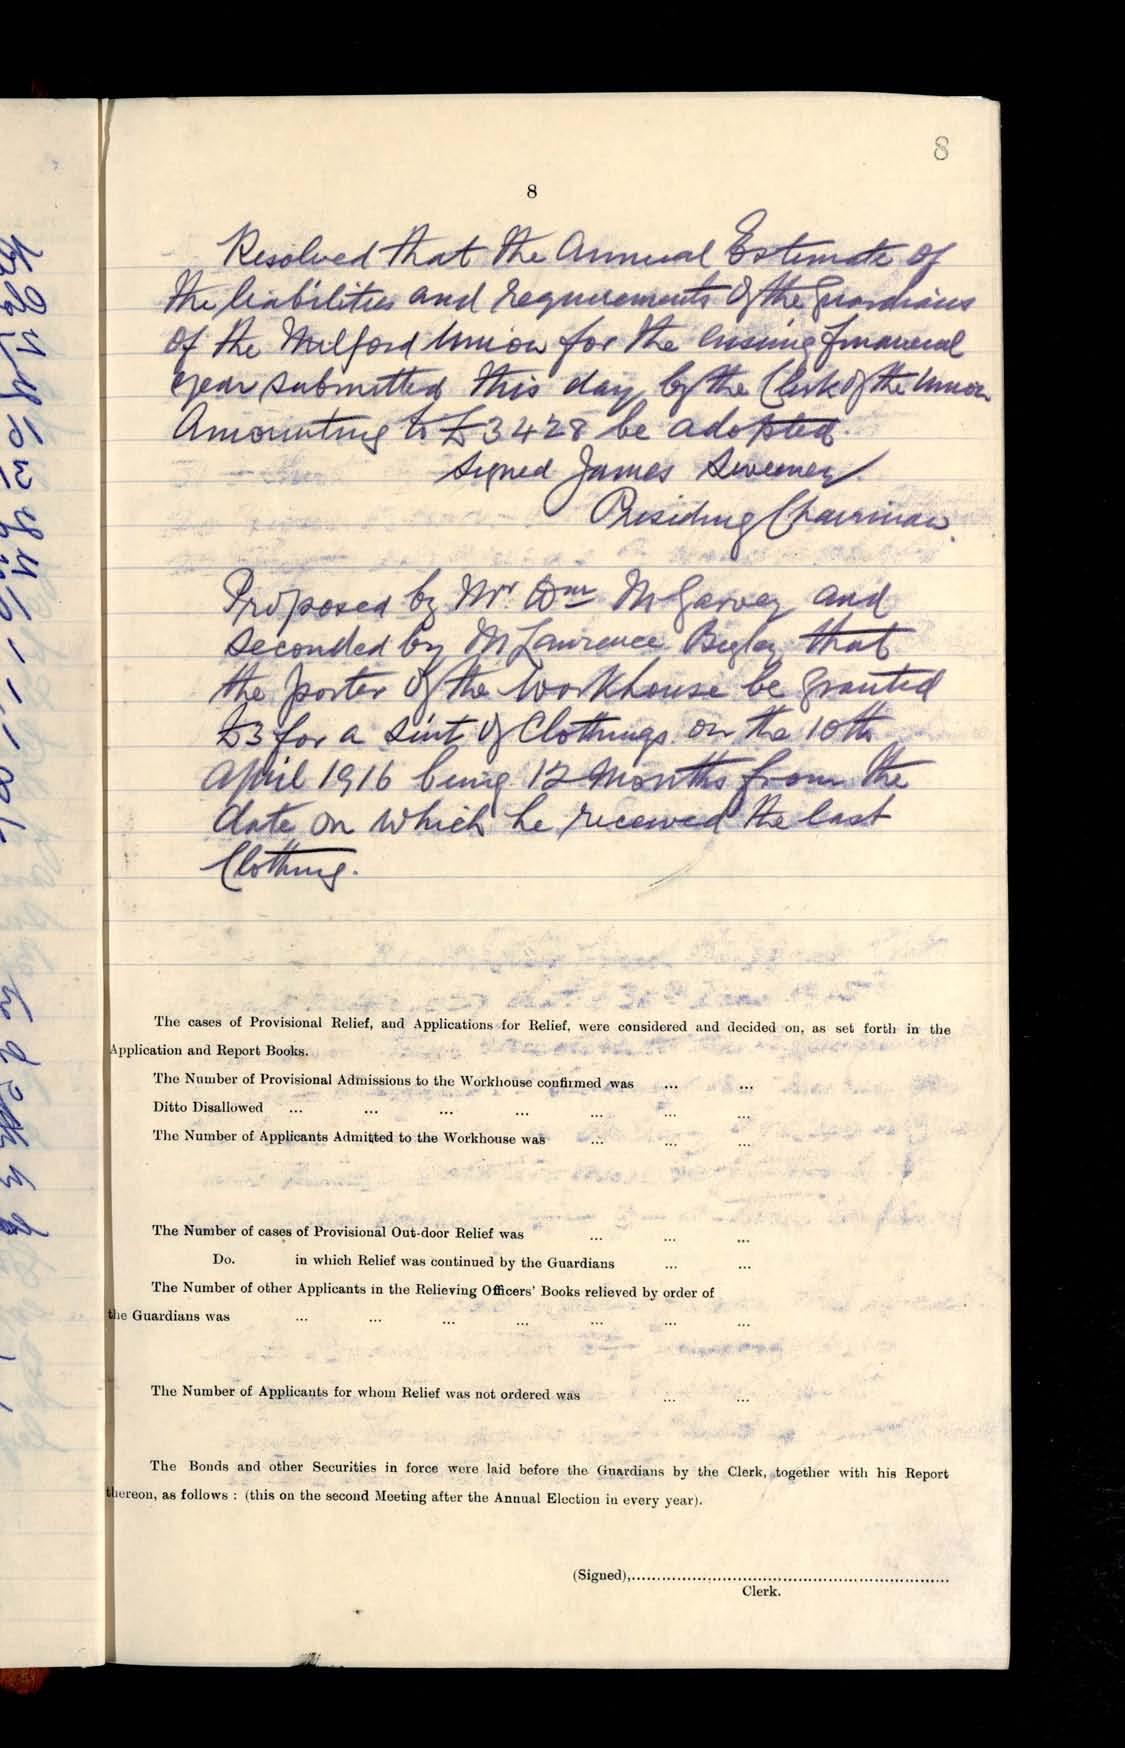 8
8
Resolved that the Annual Estimate of
the liabilities and requirements of the Guardians
of the Milford Union for the ensuing financial
year submitted this day by the Clerk of the Union
Amounting to £3428 be adopted.
Signed James Sweeney
Presiding Chairman.
Proposed by Mr. Wm McGarvey and
seconded by Mr Lawrence Begley that
the porter of the Workhouse be granted
£3 for a suit of Clothings on the 10th
April 1916 being 12 months from the
date on which he received the last
Clothing.
The cases of Provisional Relief, and Applications for Relief, were considered and decided on, as set forth in the
Application and Report Books.
The Number of Provisional Admissions to the Workhouse confirmed was ... ...
Ditto Disallowed ... ... ... ... ... ... ...
The Number of Applicants Admitted to the Workhouse was ... ... ...
The Number of cases of Provisional Out-door Relief was ... ... ...
Do. in which Relief was continued by the Guardians ... ...
The Number of other Applicants in the Relieving Officers' Books relieved by order of
the Guardians was ... ... ... ... ... ... ...
The Number of Applicants for whom Relief was not ordered was ... ...
The Bonds and other Securities in force were laid before the Guardians by the Clerk, together with his Report
thereon, as follows : (this on the second Meeting after the Annual Election in every year).
(Signed),..................................................
Clerk.